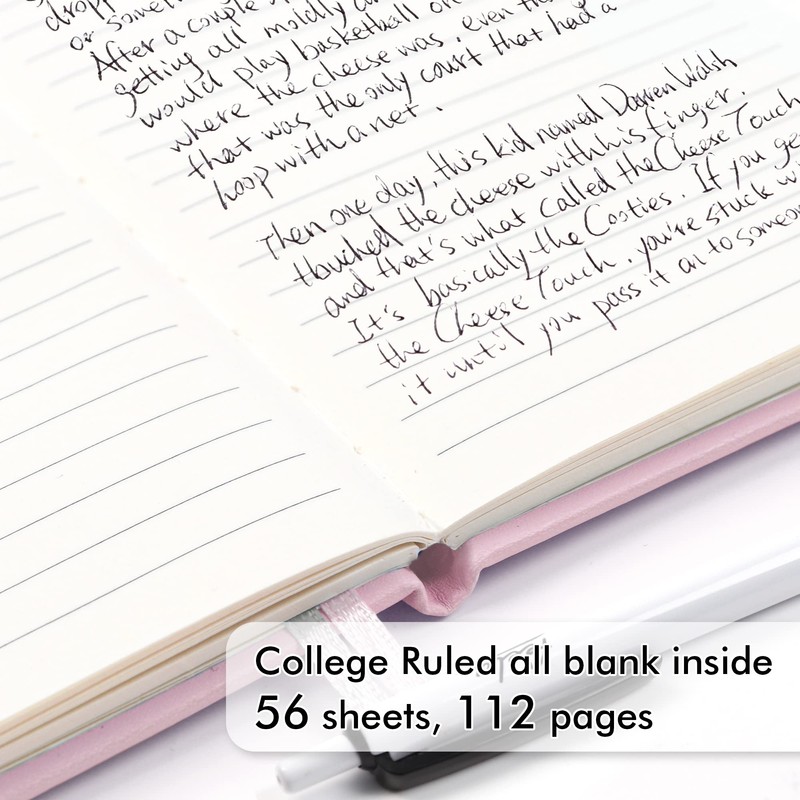 or
After a couple
getting all moldy
would play basketball on
where the cheese was. even
that was the only court that had a
hoop with a net.
Then one day, this kid named Darren Walsh
touched the cheese with his finger.
and that's what called the Cheese Touch
It's basically the Cooties. If you ge
the Cheese Touch, you're stuck wi
it until you pass it on to someo
College Ruled all blank inside
56 sheets, 112 pages